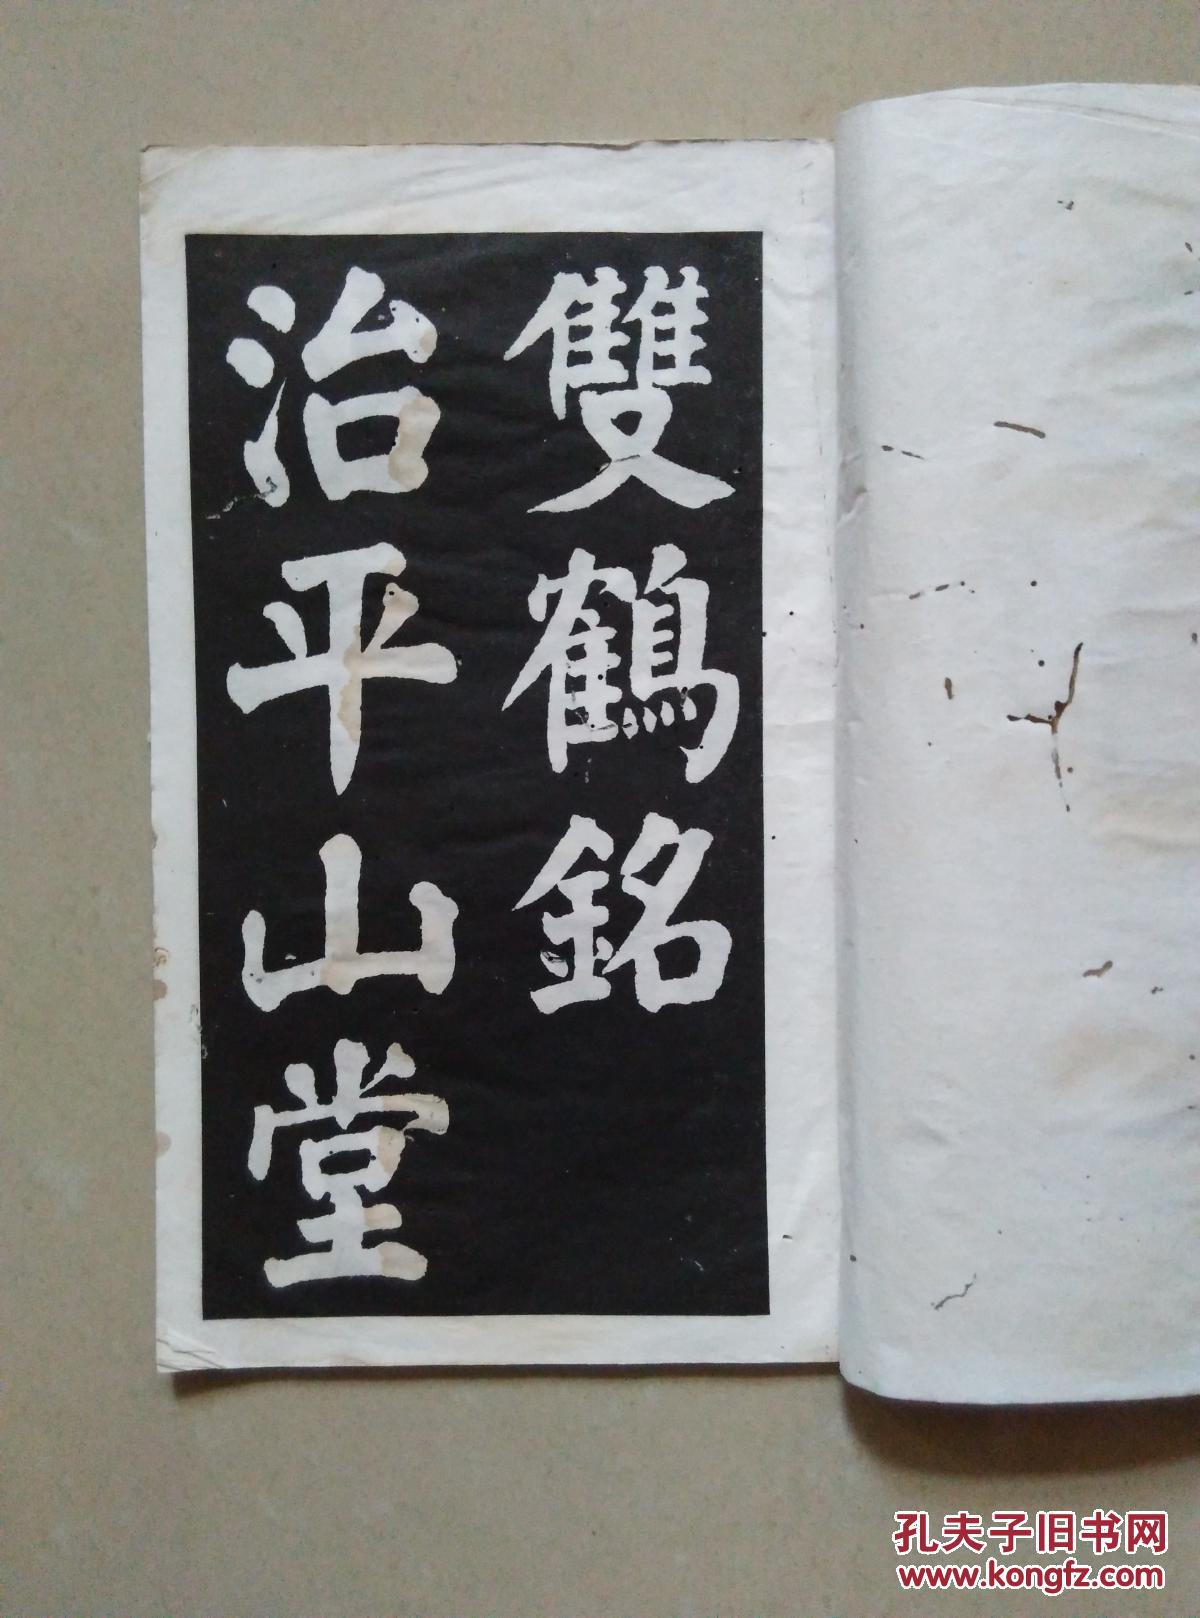 雙鶴銘
治平山堂
孔夫子旧书网
www.kongfz.com